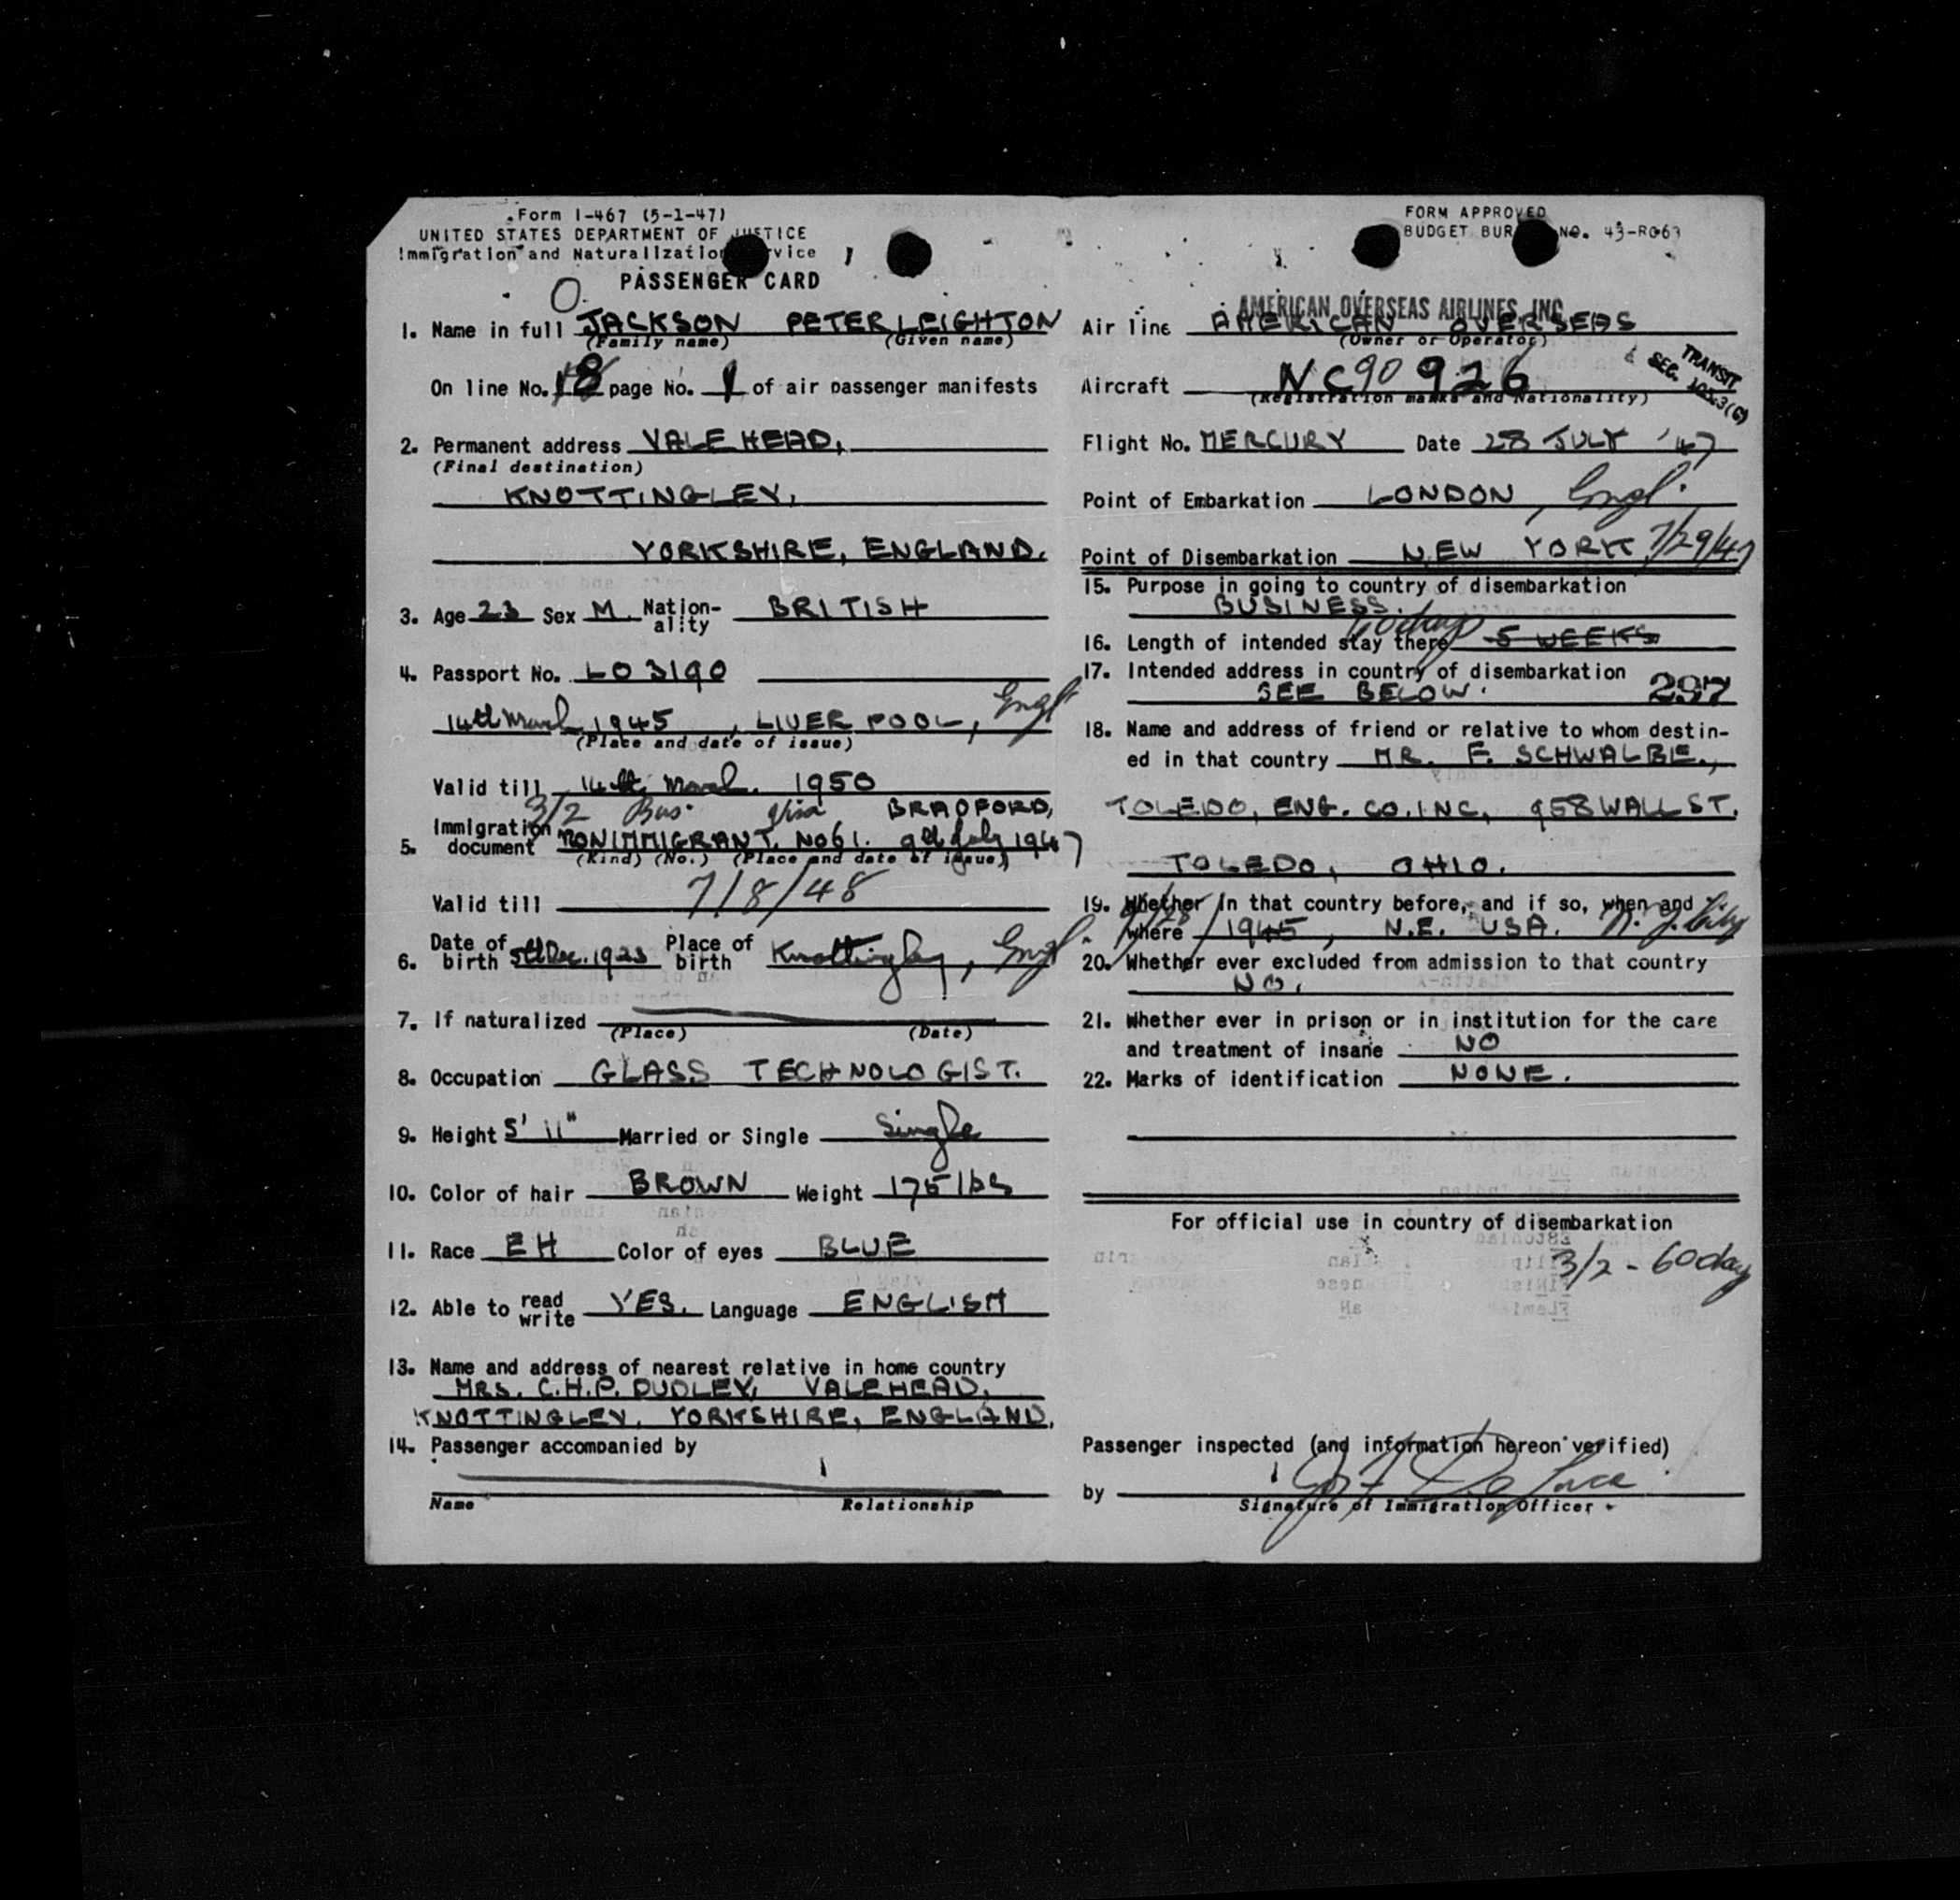 Form I-467 (5-1-47)
UNITED STATES DEPARTMENT OF JUSTICE
Immigration and Naturalization Service
PASSENGER CARD
O
1. Name in full JACKSON PETER LEIGHTON
(Family name) (Given name)
On line No. 8 page No. 1 of air passenger manifests
2. Permanent address VALE HEAD,
(Final destination)
KNOTTINGLEY,
YORKSHIRE, ENGLAND.
3. Age 23 Sex M. Nation-ality BRITISH
4. Passport No. LO 3190
14th March 1945, LIVERPOOL, Engl
(Place and date of issue)
Valid till 14th March. 1950
3/2 Bus. Visa BRADFORD,
5. Immigration document NONIMMIGRANT. NO 61. 9th July 1947
(Kind) (No.) (Place and date of issue)
Valid till 7/8/48
6. Date of birth 5th Dec. 1923 Place of birth Knottingley, Engl.
7. If naturalized
(Place) (Date)
8. Occupation GLASS TECHNOLOGIST.
9. Height 5' 11" Married or Single Single
10. Color of hair BROWN Weight 175 lbs
11. Race EH Color of eyes BLUE
12. Able to read write YES. Language ENGLISH
13. Name and address of nearest relative in home country
MRS. C.H.P. DUDLEY, VALEHEAD,
KNOTTINGLEY, YORKSHIRE, ENGLAND.
14. Passenger accompanied by
Name Relationship
FORM APPROVED
BUDGET BUREAU NO. 43-R063
AMERICAN OVERSEAS AIRLINES, INC.
Air line AMERICAN OVERSEAS
(Owner or Operator)
TRANSIT
SEC.
Aircraft NC90926
(Registration marks and Nationality)
Flight No. MERCURY Date 28 JULY '47
Point of Embarkation LONDON, Engl.
Point of Disembarkation NEW YORK 7/29/47
15. Purpose in going to country of disembarkation
BUSINESS.
60 days
16. Length of intended stay there 5 WEEKS
17. Intended address in country of disembarkation
SEE BELOW. 297
18. Name and address of friend or relative to whom destin-
ed in that country MR. F. SCHWALBE.,
TOLEDO, ENG. CO. INC, 958 WALL ST.
TOLEDO, OHIO.
19. Whether in that country before, and if so, when and
where 1945, N.E. USA. N.Y. City
20. Whether ever excluded from admission to that country
NO.
21. Whether ever in prison or in institution for the care
and treatment of insane NO
22. Marks of identification NONE.
For official use in country of disembarkation
3/2 - 60 day
Passenger inspected (and information hereon verified)
by
Signature of Immigration Officer